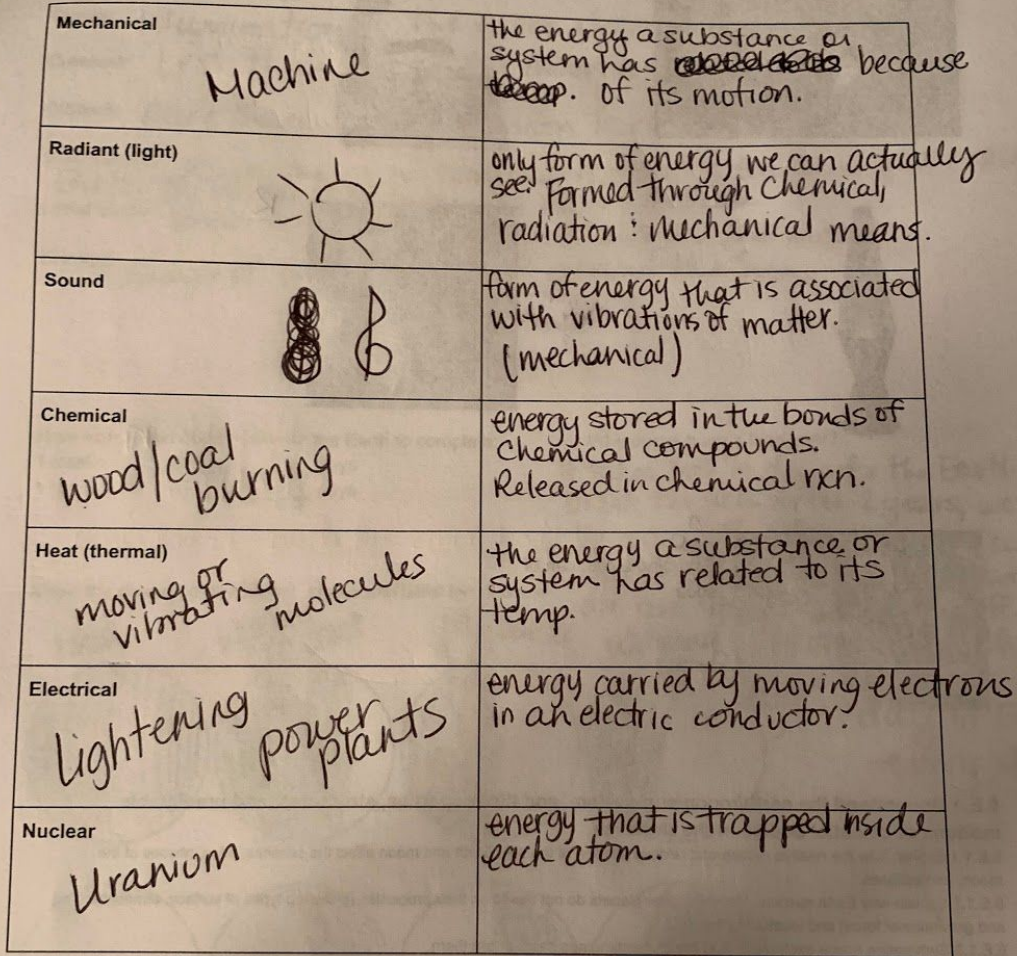 Mechanical
Machine
the energy a substance or
system has because
of its motion.
Radiant (light)
only form of energy we can actually
see. Formed through Chemical,
radiation : mechanical means.
Sound
form of energy that is associated
with vibrations of matter.
(mechanical)
Chemical
wood/coal
burning
energy stored in the bonds of
chemical compounds.
Released in chemical rxn.
Heat (thermal)
moving or
vibrating molecules
the energy a substance or
system has related to its
temp.
Electrical
lightening power
plants
energy carried by moving electrons
in an electric conductor.
Nuclear
Uranium
energy that is trapped inside
each atom.